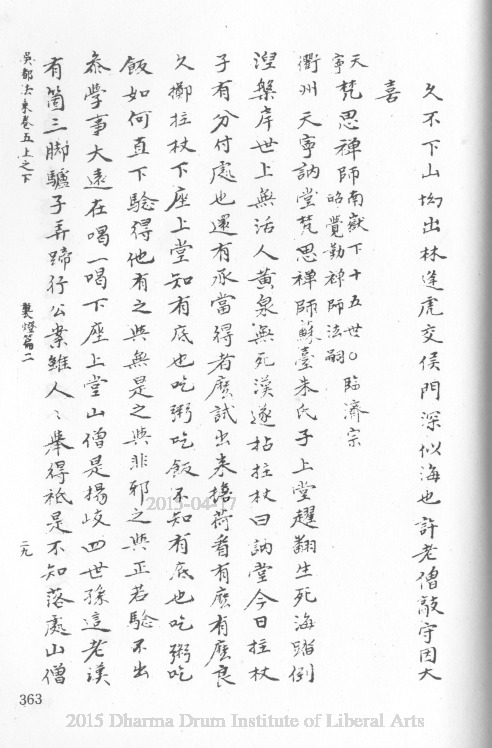 久不下山坳出林逢虎交侯門深似海也許老僧敲守因大
喜
天寧梵思禪師南嶽下十五世○臨濟宗
昭覺勤禪師法嗣
衢州天寧訥堂梵思禪師蘇臺朱氏子上堂趯翻生死海踏倒
涅槃岸世上無活人黃泉無死漢遂拈拄杖曰訥堂今日拄杖
子有分付處也還有承當得者麼試出來擔荷看有麼有麼良
久擲拄杖下座上堂知有底也吃粥吃飯不知有底也吃粥吃
飯如何直下驗得他有之與無是之與非邪之與正若驗不出
叅學事大遠在喝一喝下座上堂山僧是楊岐四世孫這老漢
有箇三脚驢子弄蹄行公案雖人〻舉得祇是不知落處山僧
吳都法乘卷五上之下
契燈篇二
二九
363
2015-04-17
2015 Dharma Drum Institute of Liberal Arts